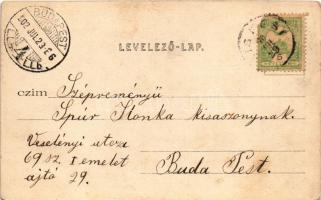 BUDAPEST
902 JUL 23 E 6
LEVELEZŐ-LAP.
czim Szépreményü
Spúr Ilonka kisaszonynak.
Veselényi uteza
69 sz. I emelet
ajtó 29.
Buda Pest.